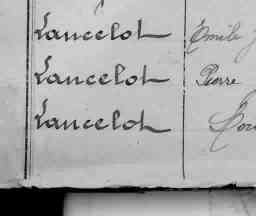 Lancelot Emile
Lancelot Pierre
Lancelot